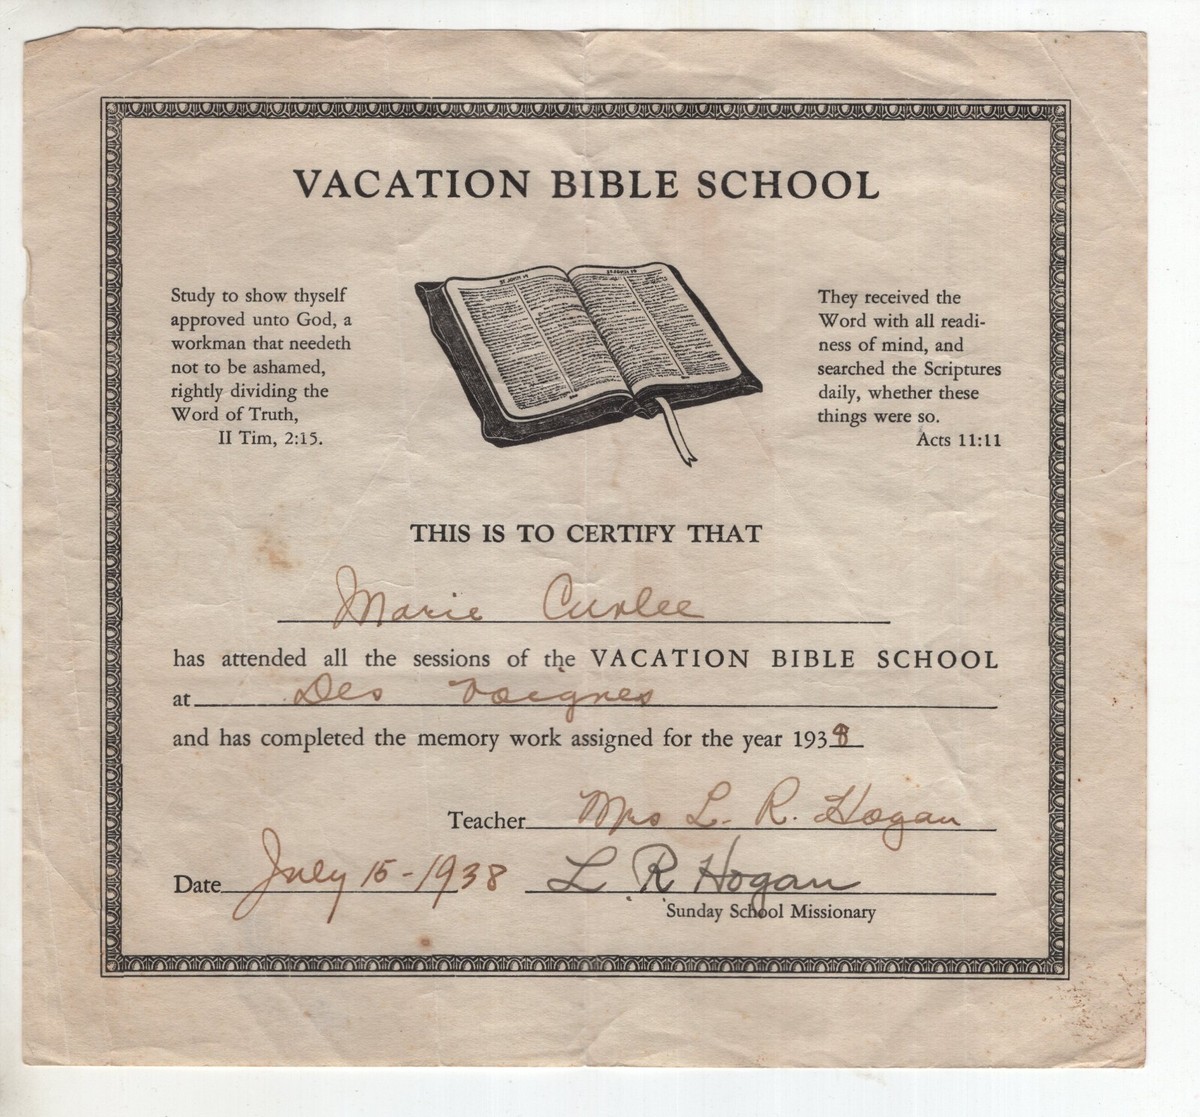 VACATION BIBLE SCHOOL
Study to show thyself
approved unto God, a
workman that needeth
not to be ashamed,
rightly dividing the
Word of Truth,
II Tim, 2:15.
They received the
Word with all readi-
ness of mind, and
searched the Scriptures
daily, whether these
things were so.
Acts 11:11
THIS IS TO CERTIFY THAT
Marie Curlee
has attended all the sessions of the VACATION BIBLE SCHOOL
at Des
and has completed the memory work assigned for the year 1938
Teacher Mrs L. R. Hogan
Date July 15-1938 L. R. Hogan
Sunday School Missionary